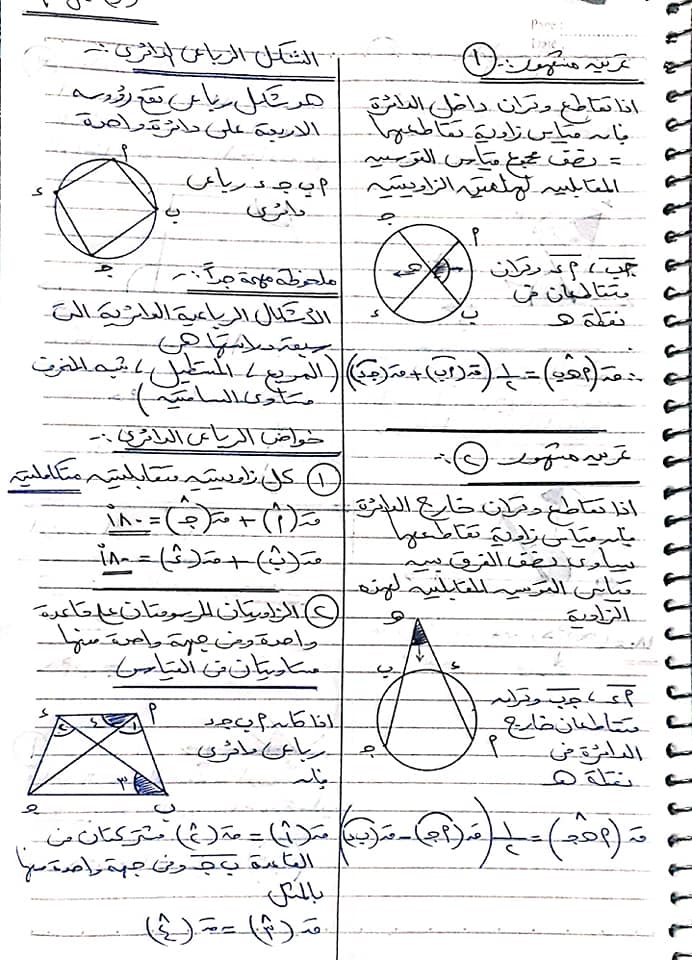 تمرين مشهور :- ①
اذا تقاطع وتران داخل الدائرة
فإن قياس زاوية تقاطعهما
= نصف مجموع قياس القوسين
المقابلين لهاتين الزاويتين
جـ
م
هـ
ء
ب
جب ، مء وتران
متقاطعان فى
نقطة هـ
∴ ق (مهب) = ١/٢ (ق (مب) + ق (جء))
تمرين مشهور ② :-
اذا تقاطع وتران خارج الدائرة
فإن قياس زاوية تقاطعهما
يساوى نصف الفرق بين
قياس القوسين المقابلين لهذه
الزاوية
هـ
ب
ء
جـ
م
مء ، جب وتران
متقاطعان خارج
الدائرة فى
نقطة هـ
ق (مهج) = ١/٢ (ق (مج) - ق (بء))
الشكل الرباعى الدائرى :-
هو شكل رباعى تقع رؤوسه
الاربعة على دائرة واحدة
م
ء
ب
جـ
م ب جـ ء رباعى
دائرى
ملحوظة مهمة جداً :-
الأشكال الرباعية الدائرية التى
سبق دراستها هى
(المربع ، المستطيل ، شبه المنحرف
متساوى الساقين)
خواص الرباعى الدائرى :-
① كل زاويتين متقابلتين متكاملتين
ق (م) + ق (ج) = ١٨٠°
ق (ب) + ق (ء) = ١٨٠°
② الزاويتان المرسومتان على قاعدة
واحدة وفى جهة واحدة منها
متساويتان فى القياس
ء
م
٢
٤
١
٣
جـ
ب
اذا كان م ب جـ ء
رباعى دائرى
فإن
ق (١) = ق (٢) مشتركتان فى
القاعدة بج وفى جهة واحدة منها
بالمثل
ق (٣) = ق (٤)